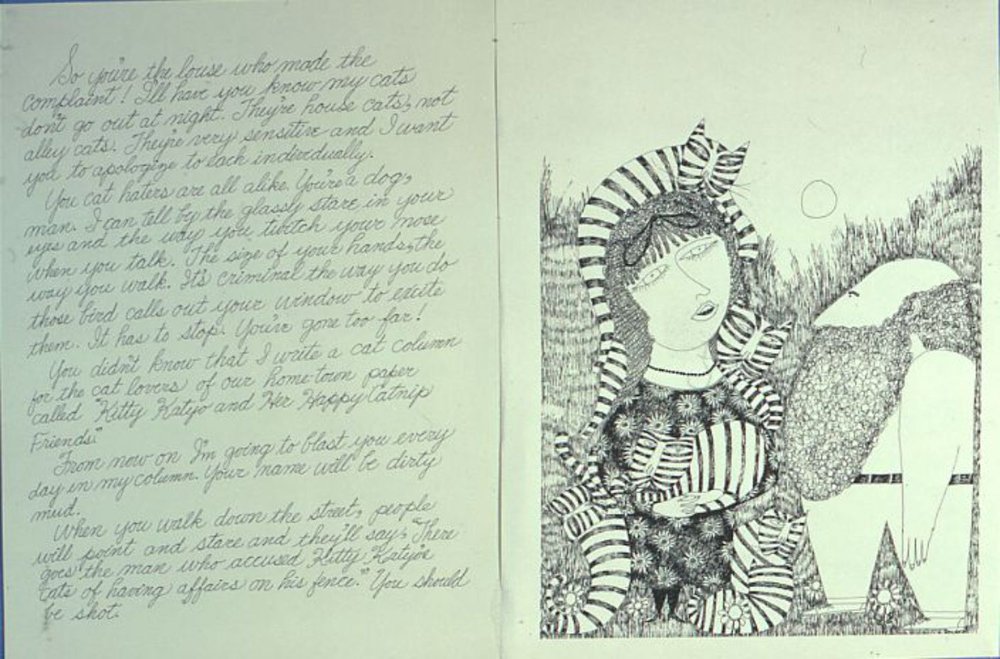 So you're the louse who made the
complaint! I'll have you know my cats
don't go out at night. They're house cats, not
alley cats. They're very sensitive and I want
you to apologize to each individually.
You cat haters are all alike. You're a dog,
man. I can tell by the glassly stare in your
eyes and the way you twitch your nose
when you talk. The size of your hands, the
way you walk. It's criminal the way you do
those bird calls out your window to excite
them. It has to stop. You've gone too far!
You didn't know that I write a cat column
for the cat lovers of our home town paper
called "Kitty Katyo and Her Happy Catnip
Friends."
From now on I'm going to blast you every
day in my column. Your name will be dirty
mud.
When you walk down the street, people
will point and stare and they'll say, "There
goes the man who accused Kitty Katyo's
cats of having affairs on his fence." You should
be shot.